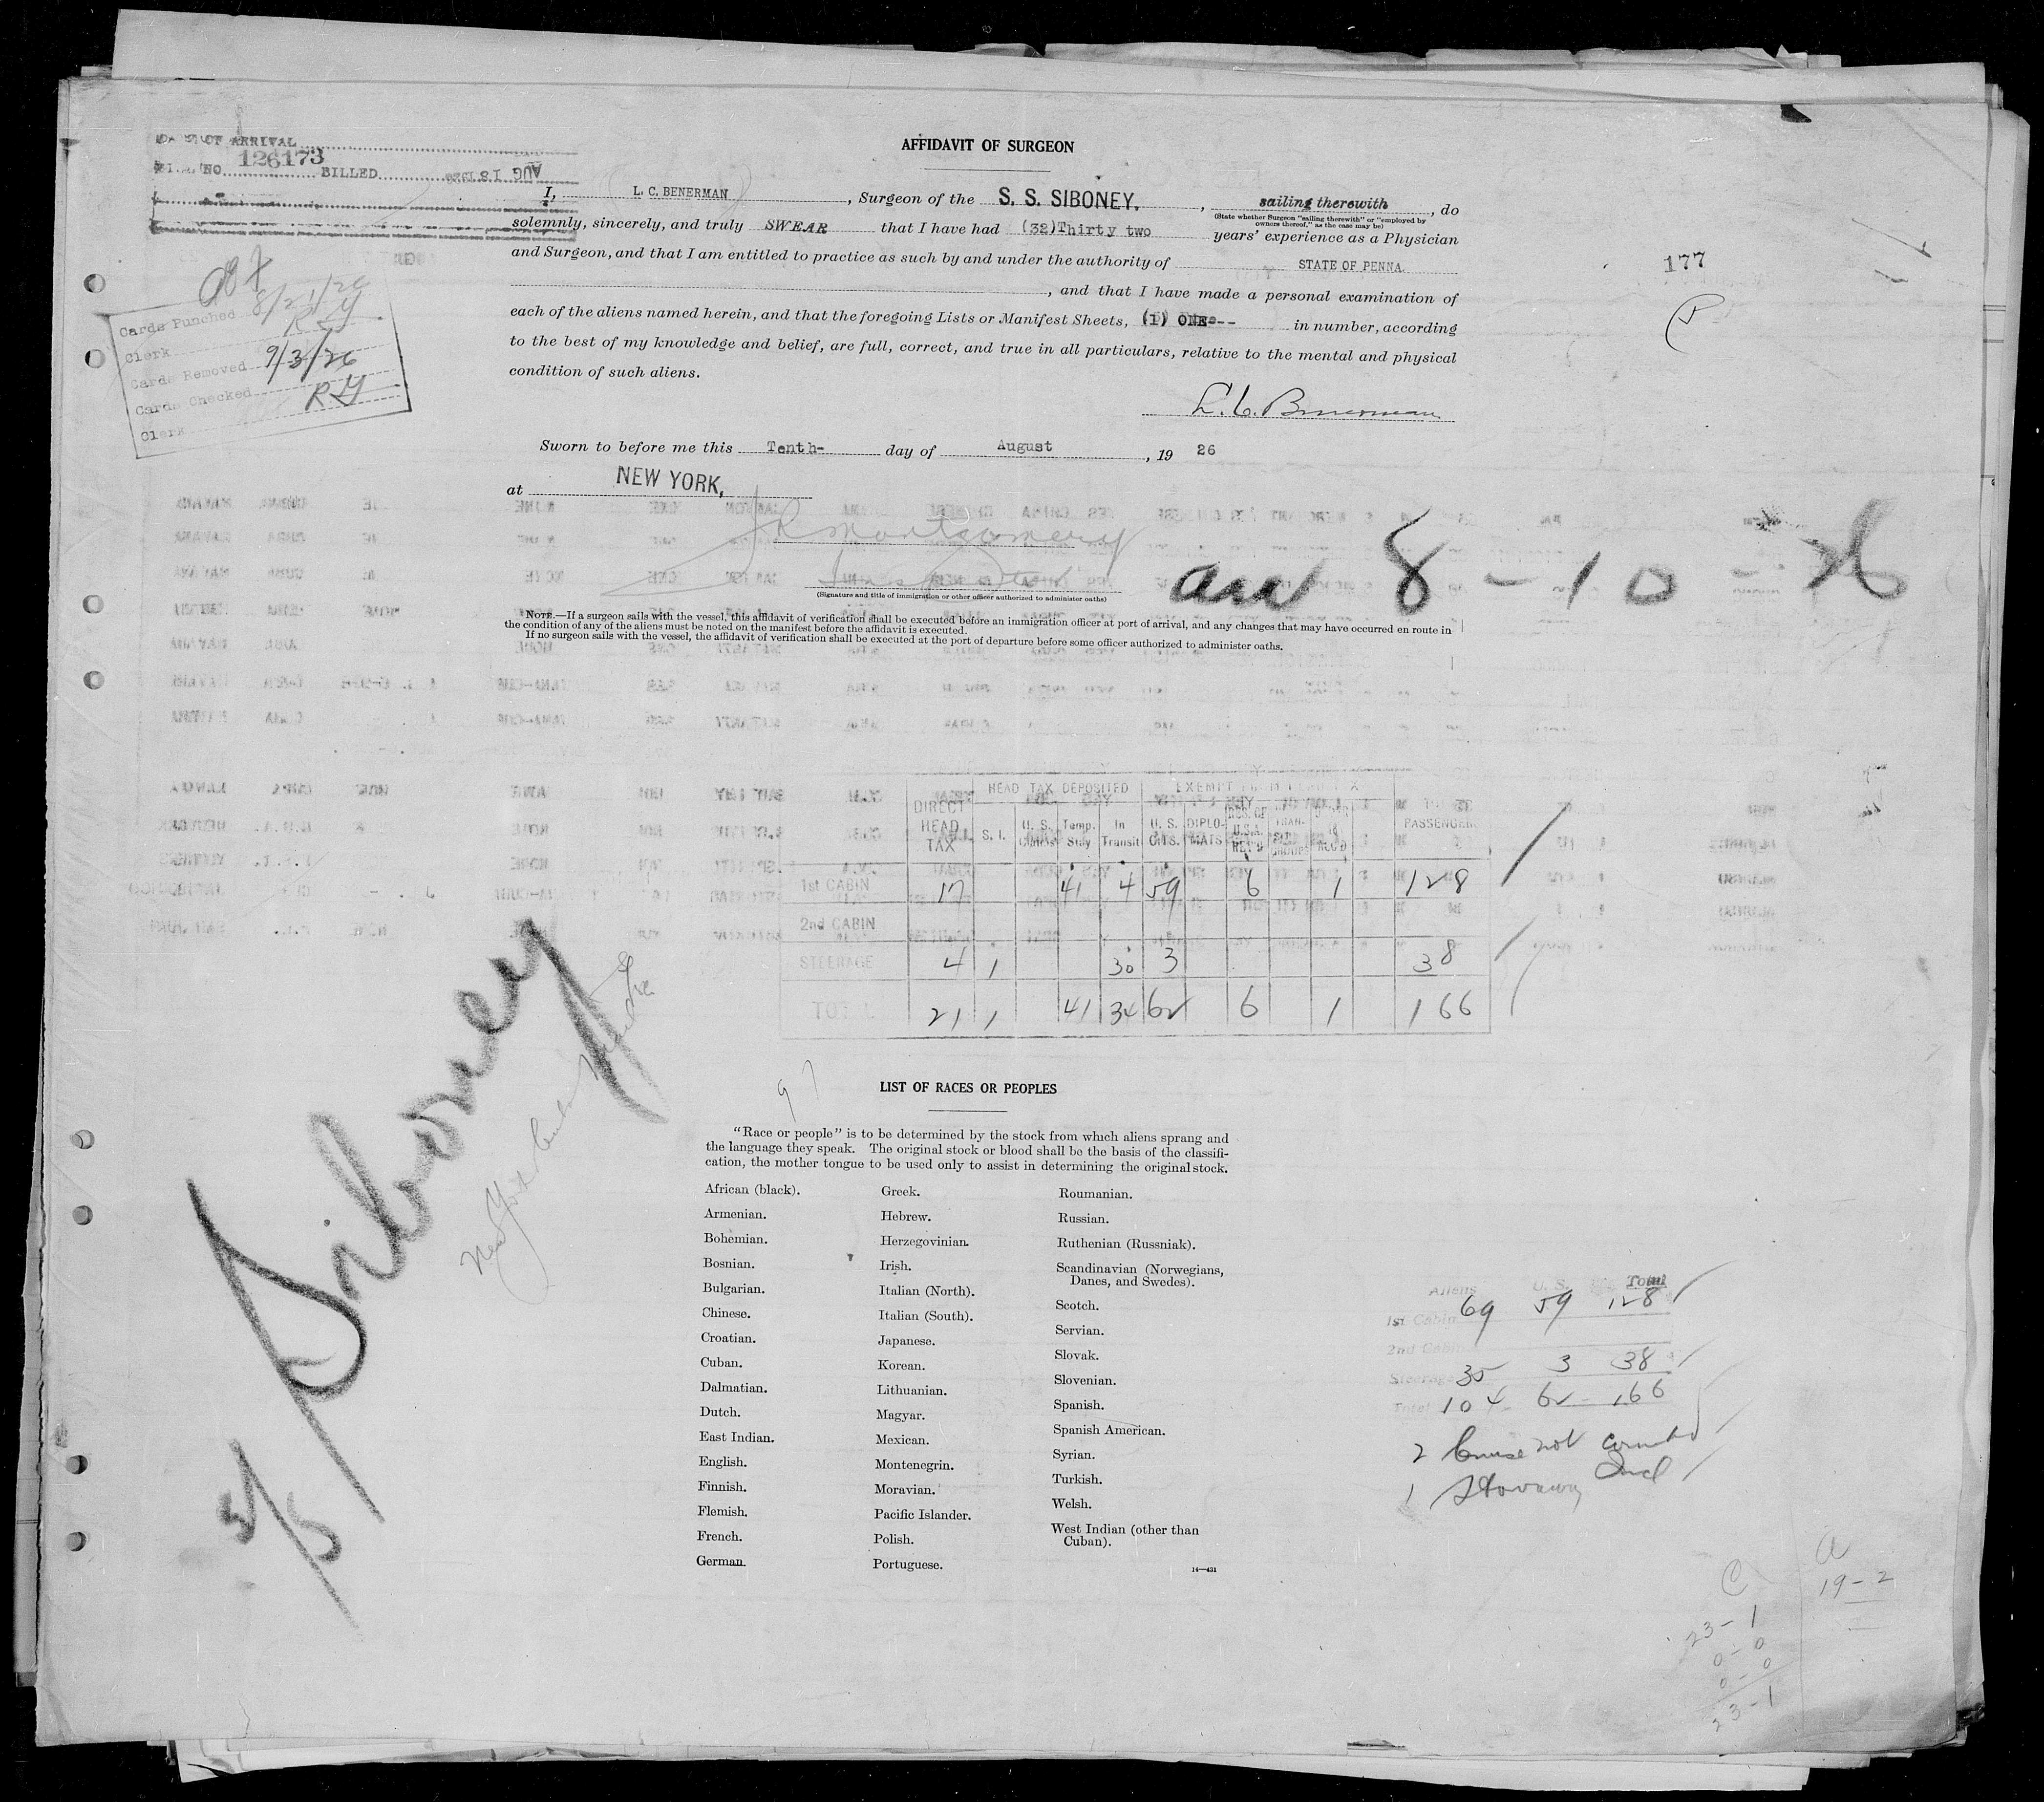 OF ARRIVAL
NO. 126173 BILLED AUG 18 1926
AFFIDAVIT OF SURGEON
I, L. C. BENERMAN, Surgeon of the S. S. SIBONEY, sailing therewith, do
(State whether Surgeon "sailing therewith" or "employed by
owners thereof," as the case may be)
solemnly, sincerely, and truly SWEAR that I have had (32)Thirty two years' experience as a Physician
and Surgeon, and that I am entitled to practice as such by and under the authority of STATE OF PENNA.
, and that I have made a personal examination of
each of the aliens named herein, and that the foregoing Lists or Manifest Sheets, (1) ONE-- in number, according
to the best of my knowledge and belief, are full, correct, and true in all particulars, relative to the mental and physical
condition of such aliens.
L. C. Benerman
Sworn to before me this Tenth- day of August, 19 26
at NEW YORK,
Montgomery
(Signature and title of immigration or other officer authorized to administer oaths)
177
Cards Punched 8/21/26
Clerk R G
Cards Removed 9/3/26
Cards Checked R G
Clerk
arr 8-10-26
NOTE.—If a surgeon sails with the vessel, this affidavit of verification shall be executed before an immigration officer at port of arrival, and any changes that may have occurred en route in
the condition of any of the aliens must be noted on the manifest before the affidavit is executed.
If no surgeon sails with the vessel, the affidavit of verification shall be executed at the port of departure before some officer authorized to administer oaths.
HEAD TAX DEPOSITED EXEMPT FROM HEAD TAX
DIRECT HEAD TAX S. I. U. S. Temp. Stay In Transit U. S. CITS. DIPLOMATS U.S.A. RET'D PASSENGERS
1st CABIN 17 41 4 59 6 1 128
2nd CABIN
STEERAGE 4 1 30 3 38
TOTAL 21 1 41 34 62 6 1 166
Siboney
LIST OF RACES OR PEOPLES
"Race or people" is to be determined by the stock from which aliens sprang and
the language they speak. The original stock or blood shall be the basis of the classifi-
cation, the mother tongue to be used only to assist in determining the original stock.
African (black).
Armenian.
Bohemian.
Bosnian.
Bulgarian.
Chinese.
Croatian.
Cuban.
Dalmatian.
Dutch.
East Indian.
English.
Finnish.
Flemish.
French.
German.
Greek.
Hebrew.
Herzegovinian.
Irish.
Italian (North).
Italian (South).
Japanese.
Korean.
Lithuanian.
Magyar.
Mexican.
Montenegrin.
Moravian.
Pacific Islander.
Polish.
Portuguese.
Roumanian.
Russian.
Ruthenian (Russniak).
Scandinavian (Norwegians,
Danes, and Swedes).
Scotch.
Servian.
Slovak.
Slovenian.
Spanish.
Spanish American.
Syrian.
Turkish.
Welsh.
West Indian (other than
Cuban).
14—431
Aliens U. S. Total
1st Cabin 69 59 128
2nd Cabin
Steerage 35 3 38
Total 104 62 166
2 Cruise not counted
1 Stowaway Incl
C
23-1
0-0
0-0
23-1
a
19-2